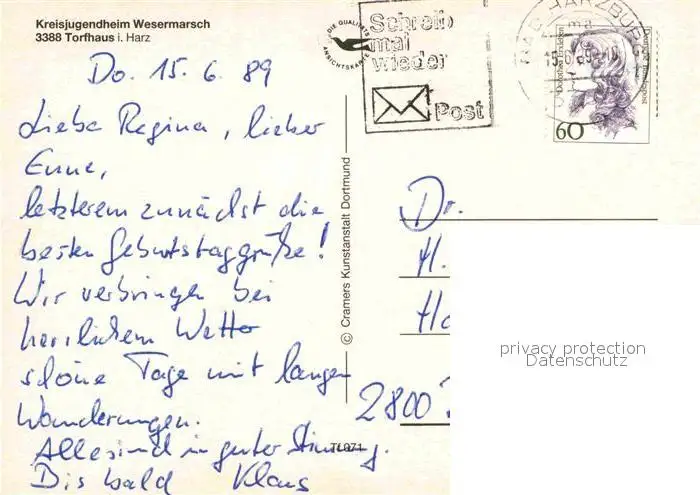 Kreisjugendheim Wesermarsch
3388 Torfhaus i. Harz
Do. 15. 6. 89
Liebe Regina, lieber
Enne,
letzterem zunächst die
besten Geburtstaggrüße!
Wir verbringen bei
herrlichem Wetter
schöne Tage mit langen
Wanderungen.
Alle sind in guter Stimmung.
Bis bald Klaus
DIE QUALITÄTS
ANSICHTSKARTE
© Cramers Kunstanstalt Dortmund
Schreib
mal
wieder
Post
BAD HARZBURG
15.6.89
Deutsche Bundespost
60
Dr.
H.
Ha
2800
privacy protection
Datenschutz